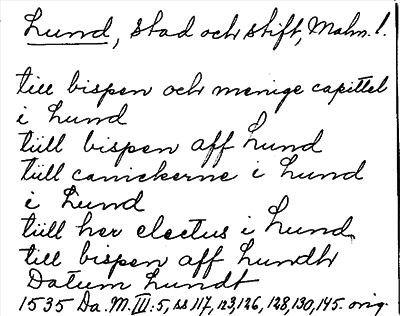 Lund, stad och stift, Malm. l.
till bispen och menige capittel
i Lund
tiill bispen aff Lund
tiill canickerne i Lund
i Lund
tiill her electus i Lund
till bispen aff Lundh
Datum Lundt
1535 Da. M. III:5, ss 117, 123, 126, 128, 130, 145. orig.